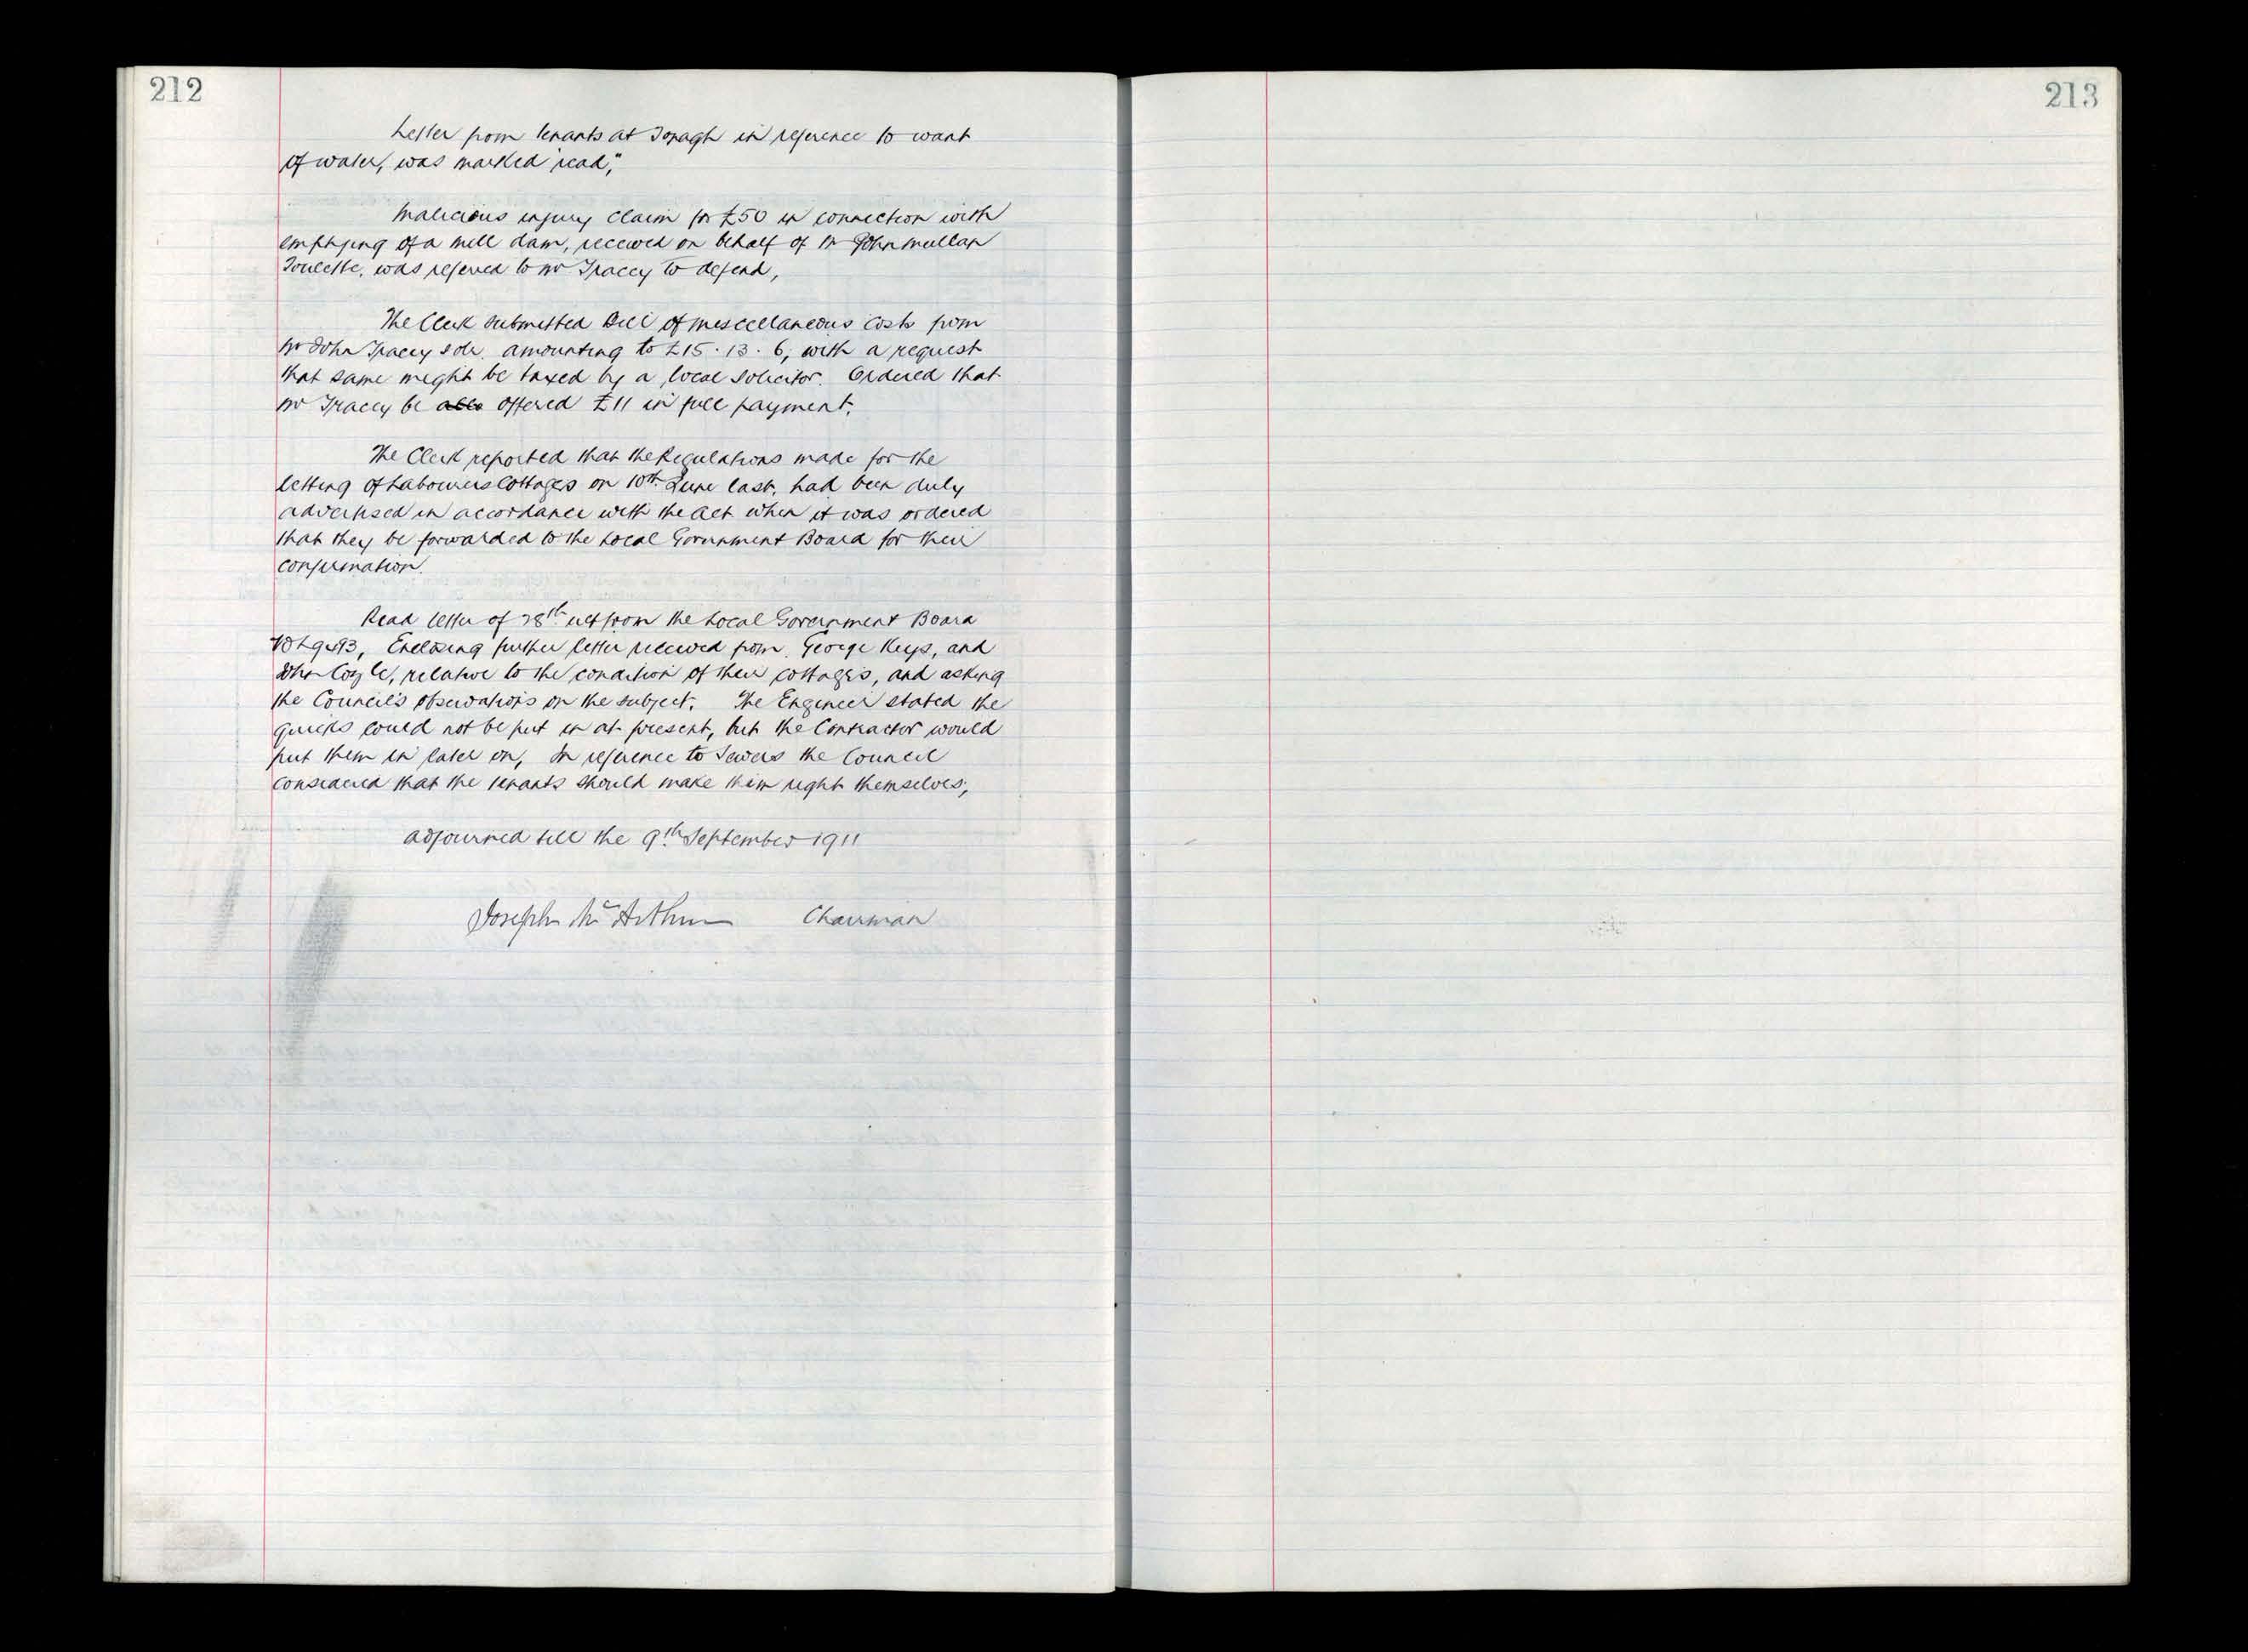 212
Letter from tenants at Tonagh in reference to want
of water, was marked "read",
Malicious injury claim for £50 in connection with
emptying of a mill dam, received on behalf of Mr John Mullan
was referred to Mr Tracey to defend,
The Clerk submitted Bill of miscellaneous costs from
Mr John Tracey solr. amounting to £15.13.6, with a request
that same might be taxed by a local solicitor. Ordered that
Mr Tracey be offered £11 in full payment.
The Clerk reported that the Regulations made for the
letting of Labourers Cottages on 10th June last, had been duly
advertised in accordance with the Act when it was ordered
that they be forwarded to the Local Government Board for their
confirmation.
Read letter of 28th ult from the Local Government Board
Enclosing further letter received from George Keys, and
John Coyle, relative to the condition of their cottages, and asking
the Council's observations on the subject. The Engineer stated the
quicks could not be put in at present, but the Contractor would
put them in later on, In reference to Sewers the Council
considered that the tenants should make them right themselves,
adjourned till the 9th September 1911
Joseph McArthur Chairman
213